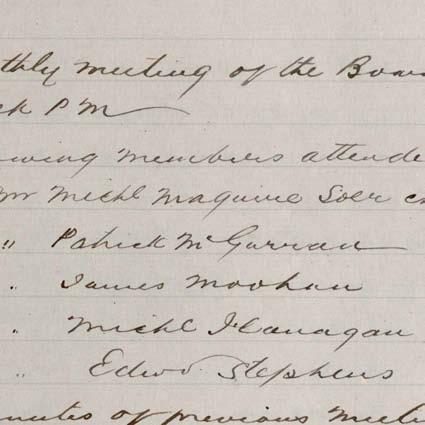 thly meeting of the Boar
ck PM
owing members attende
Mr Michl Maguire Solr ch
" Patrick McGurran
" James Moohan
" Michl Flanagan
" Edwd Stephens
nutes of previous Meeti